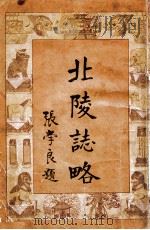 北陵誌略
張学良題
www.duxiu.com